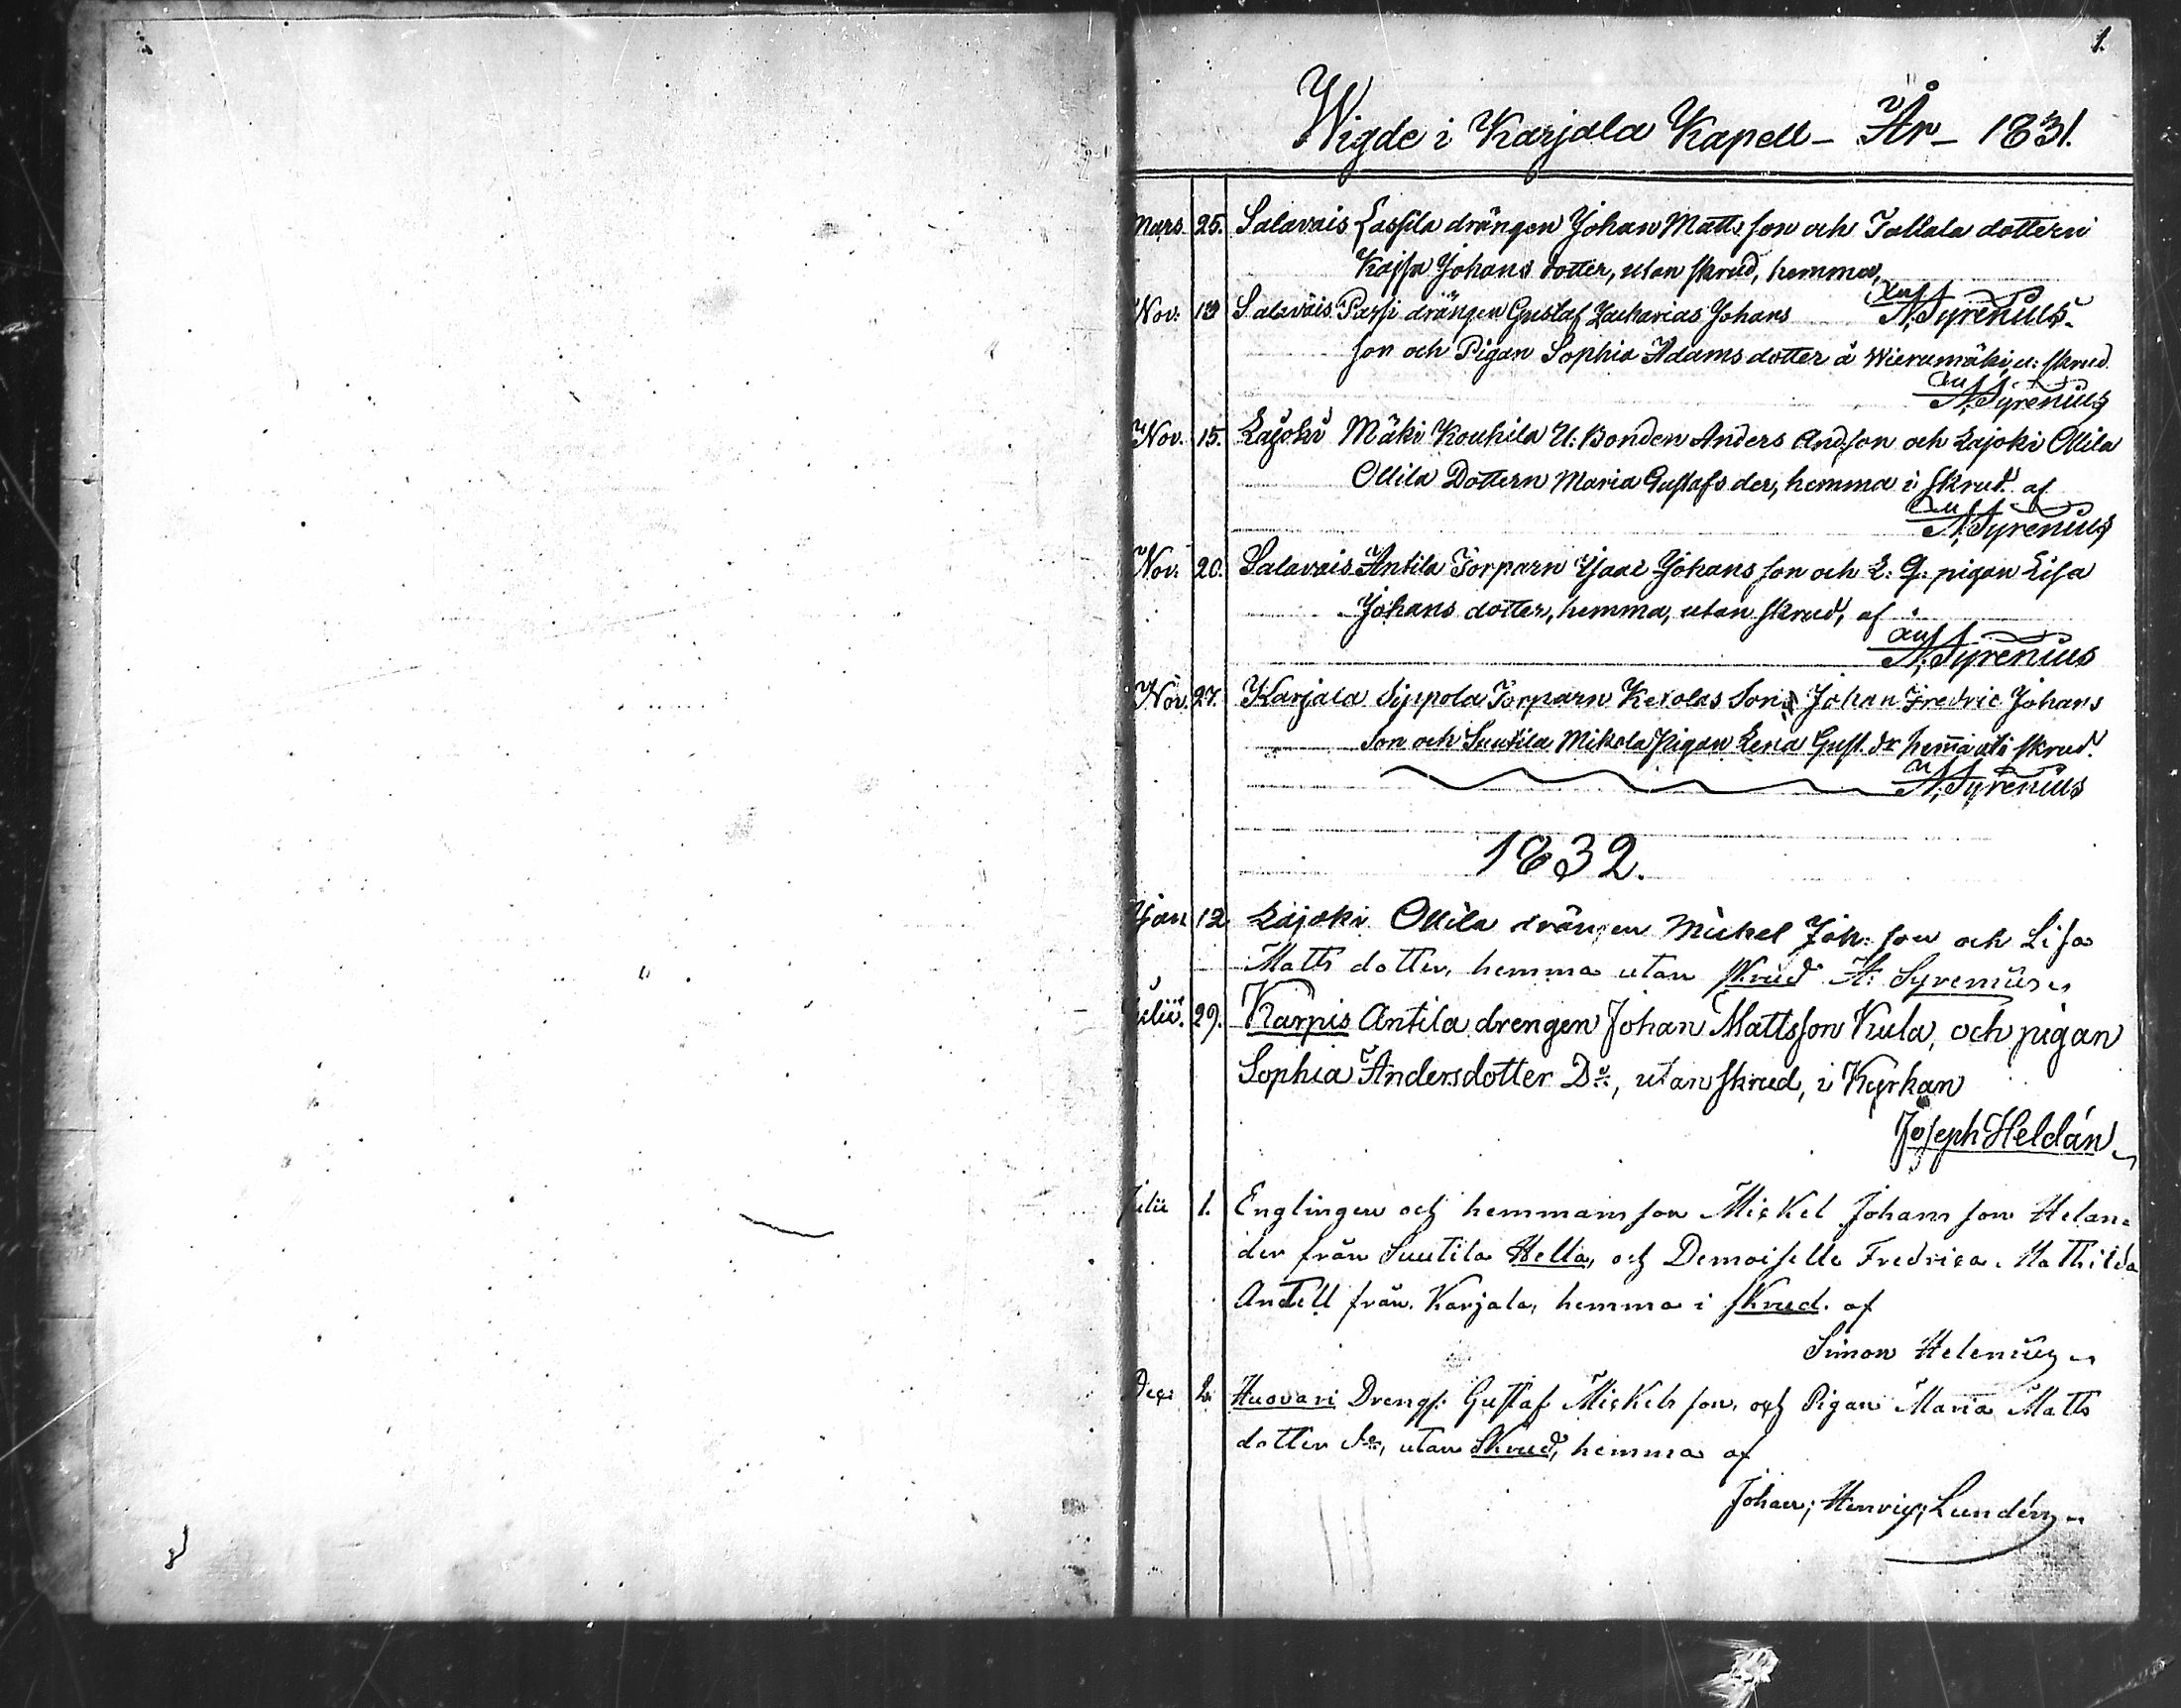 1.
Wigde i Karjala Kapell - År - 1831.
Mars 25. Salavais Lassila drängen Johan Mattsson och Tallala dottern
Kajsa Johans dotter, utan skrud, hemma,
Nov. 13 Salavais Passi drängen Gustaf Zacharias Johans af A. Syrenius.
son och Pigan Sophia Adams dotter å Wierumäki, u: skrud.
A. Syrenius
Nov. 15. Lajoki Mäki Kouhila U: Bonden Anders And.son och Lajoki Ollila
Ollila Dottern Maria Gustafs der, hemma i skrud. af
A. Syrenius
Nov. 20. Salavais Antila Torparn Isaac Johansson och L: G: pigan Lisa
Johans dotter, hemma, utan skrud, af
A. Syrenius
Nov. 27. Karjala Sippola Torparn Kexolas Son Johan Fredric Johans
son och Suutila Mikola Pigan Lena Gust. dr hema uti skrud.
A. Syrenius
1832.
Jan 12. Lajoki Ollila drängen Michel Joh: son och Lisa
Matts dotter, hemma utan skrud A: Syrenius
Julii. 29. Karpis Antila drengen Johan Mattsson Kula, och pigan
Sophia Andersdotter Do:, utan skrud, i Kyrkan
Joseph Heldán
Julii 1. Englingen och hemmansson Mickel Johansson Helan=
der från Suutila Hella, och Demoiselle Fredrica Mathilda
Andell från Karjala, hemma i skrud. af
Simon Helenius
Dec: 2. Huovari Drengs: Gustaf Mickelsson, och Pigan Maria Matts
dotter do:, utan Skrud, hemma af
Johan; Henric; Lundén